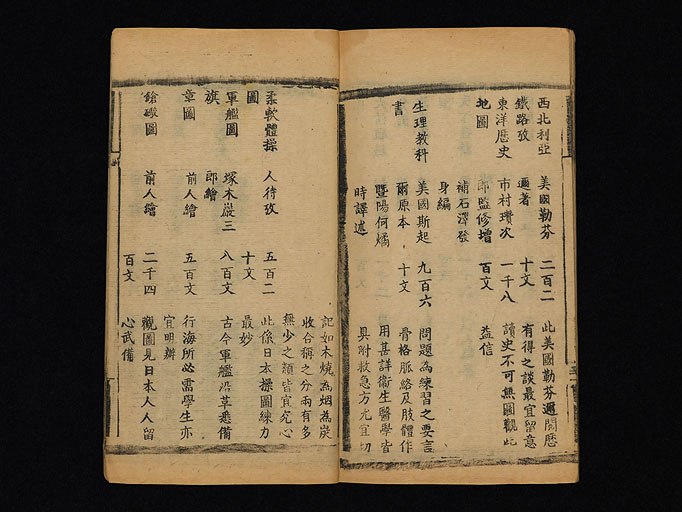 西北利亞 美國勒芬 二百二 此美國勒芬遯閱歷
鐵路攷 遯著 十文 有得之談最宜留意
東洋歷史 市村瓚次 一千八 讀史不可無圖觀此
地圖 郎監修增 百文 益信
補石澤發
身編
生理教科 美國斯起 九百六 問題為練習之要言
書 爾原本 十文 骨格脈絡及肢體作
暨陽何燏 用甚詳衛生醫學皆
時譯述 具附救急方尤宜切
記如木燒為烟為炭
收合稱之分兩有多
無少之類皆宜究心
柔軟體操 人待攷 五百二 此係日本操圖練力
圖 十文 最妙
軍艦圖 塚木巌三 八百文 古今軍艦沿革悉備
旗 郎繪
章圖 前人繪 五百文 行海所必需學生亦
宜明辨
鎗礮圖 前人繪 二千四 觀圖見日本人人留
百文 心武備